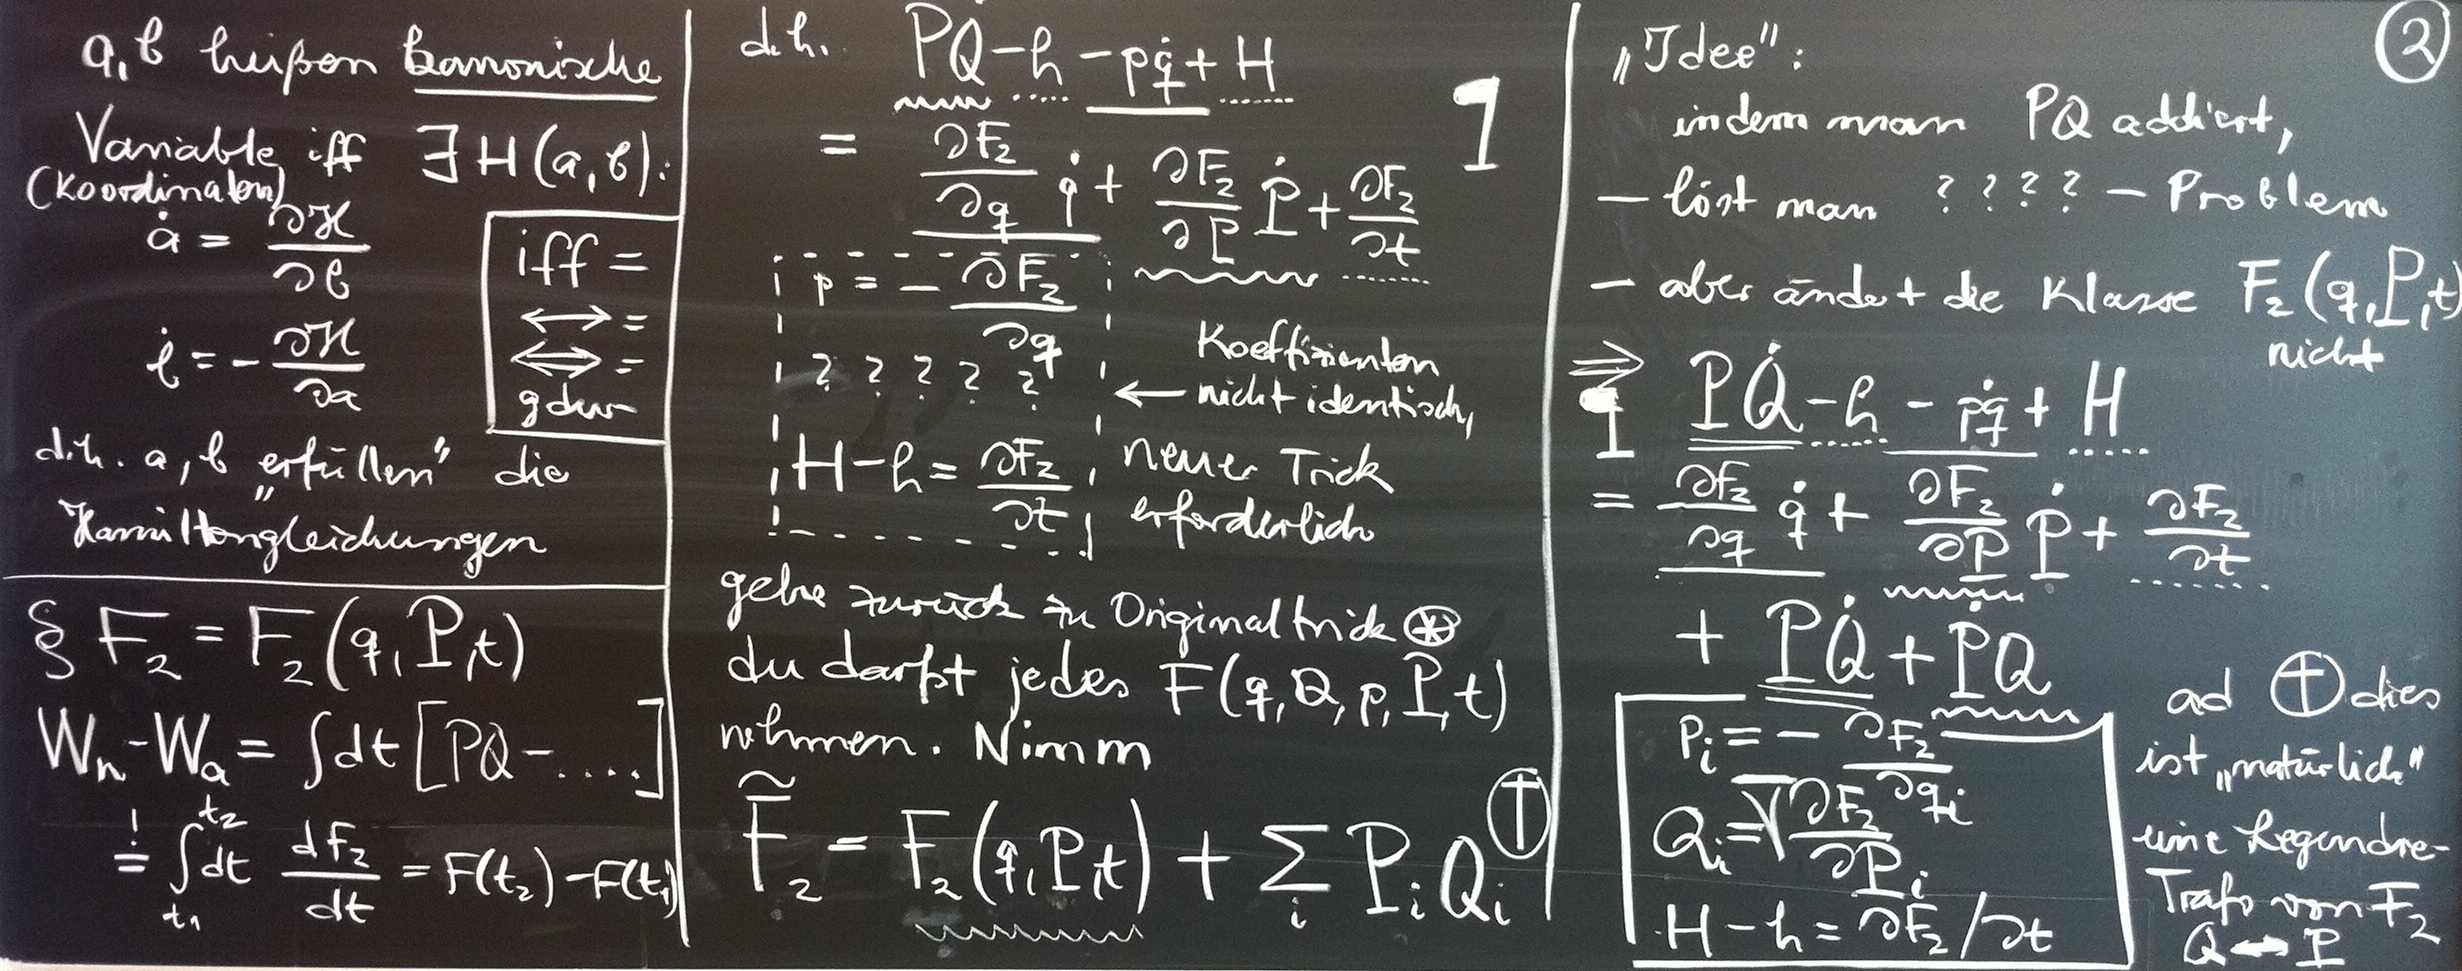 a, b heißen kanonische
Variable iff ∃ H(a, b):
(Koordinaten)
ȧ = ∂H/∂b
ḃ = - ∂H/∂a
iff =
⟷ =
⟺ =
gdw
d.h. a, b "erfüllen" die
Hamiltongleichungen
§ F₂ = F₂(q, P, t)
Wₙ - Wₐ = ∫dt [PQ - .....]
!= ∫_{t₁}^{t₂} dt dF₂/dt = F(t₂) - F(t₁)
d.h. PQ̇ - h - pq̇ + H
= ∂F₂/∂q q̇ + ∂F₂/∂P Ṗ + ∂F₂/∂t
p = - ∂F₂/∂q
? ? ? ? ?
H - h = ∂F₂/∂t
Koeffizienten
← nicht identisch,
neuer Trick
erforderlich
gehe zurück zu Originaltrick ⊛
du darfst jedes F(q, Q, p, P, t)
nehmen. Nimm
F̃₂ = F₂(q, P, t) + Σᵢ Pᵢ Qᵢ ⊕
②
"Idee":
indem man PQ addiert,
- löst man ? ? ? ? - Problem
- aber ändert die Klasse F₂(q, P, t)
nicht
⇒ PQ̇ - h - pq̇ + H
= ∂F₂/∂q q̇ + ∂F₂/∂P Ṗ + ∂F₂/∂t
+ PQ̇ + ṖQ
pᵢ = - ∂F₂/∂qᵢ
Qᵢ = - ∂F₂/∂Pᵢ
H - h = ∂F₂/∂t
ad ⊕ dies
ist "natürlich"
eine Legendre-
Trafo von F₂
Q ↔ P